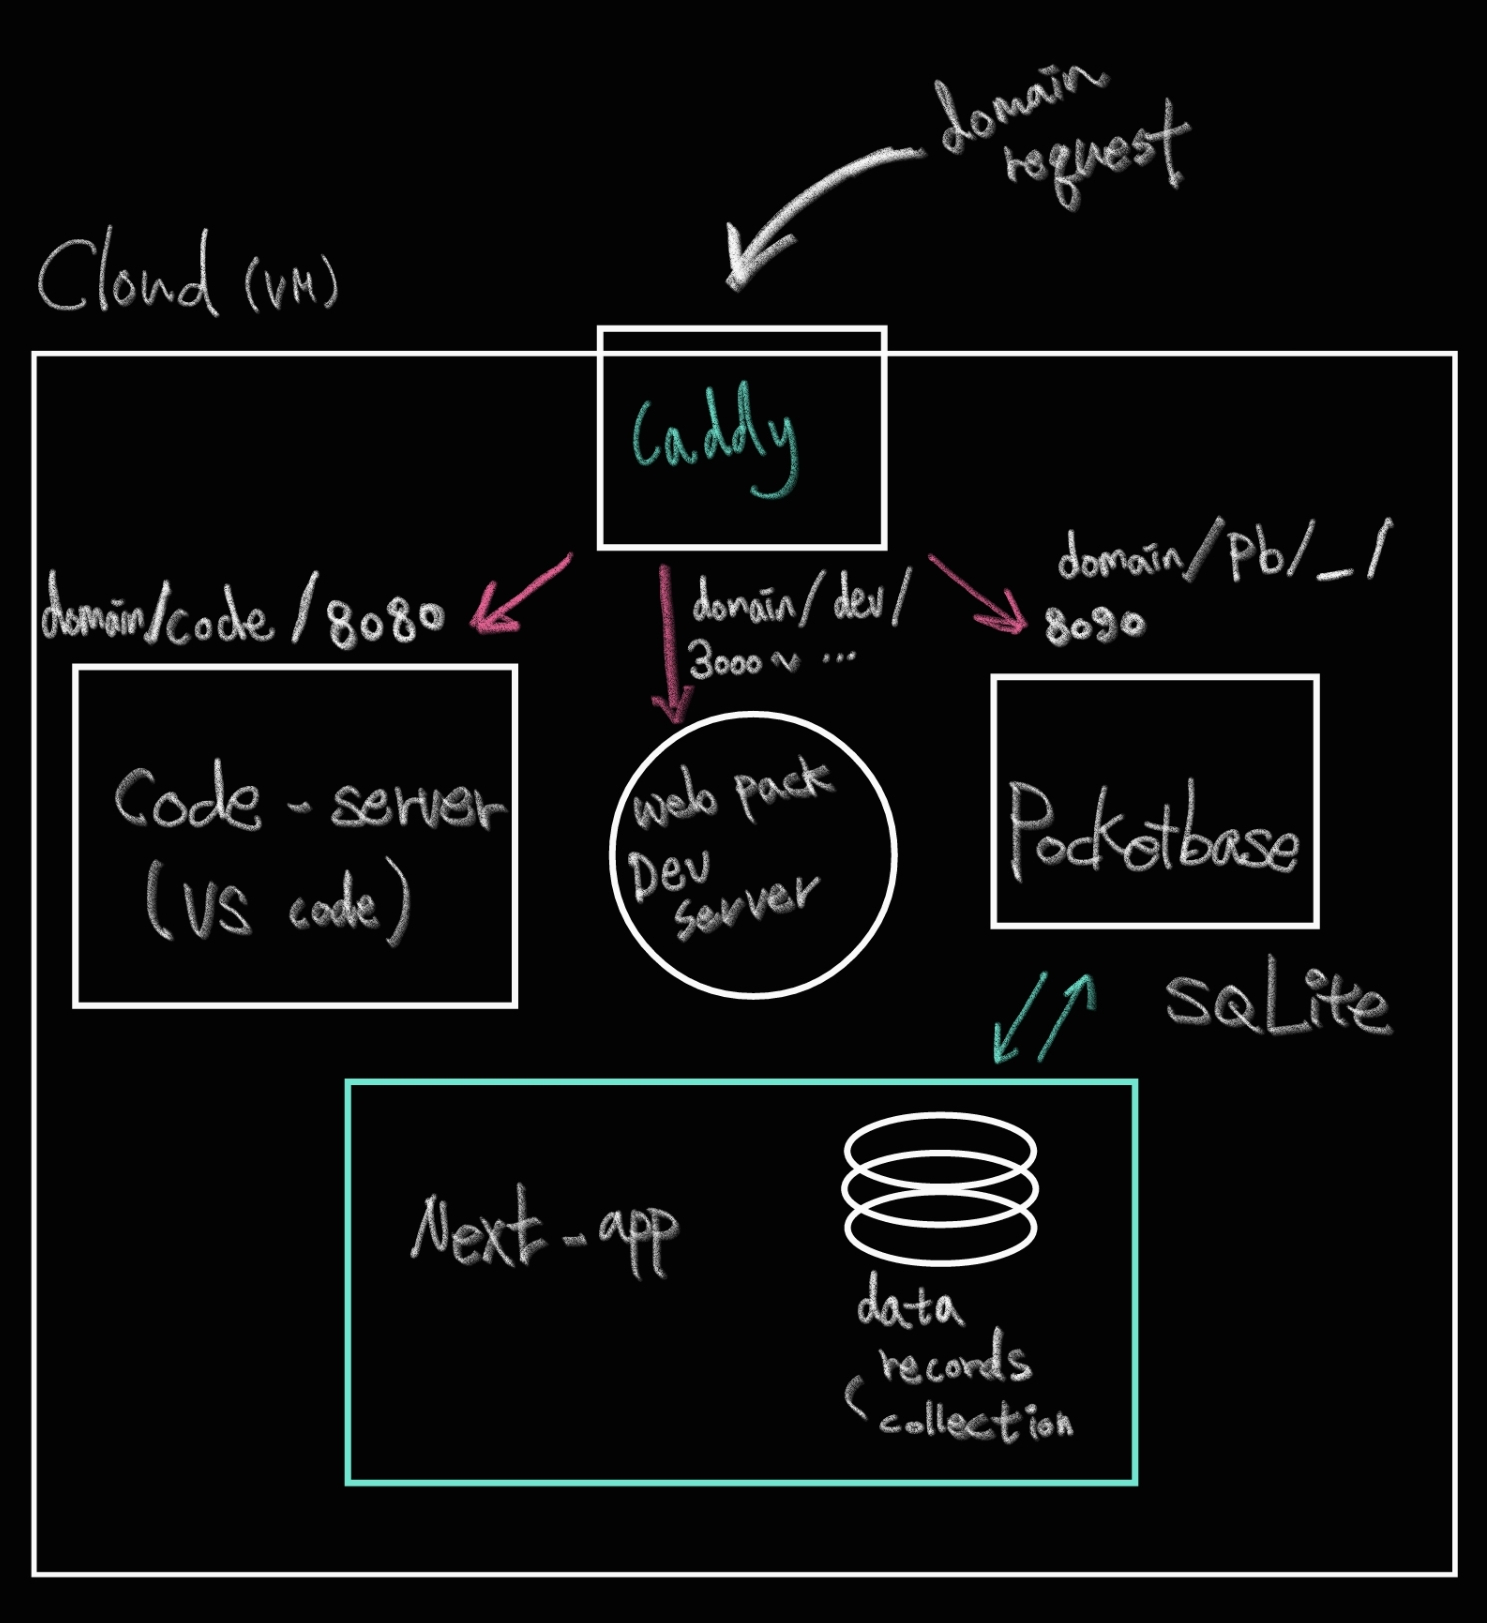 domain
request
Cloud (VM)
Caddy
domain/code/8080
domain/dev/
3000~ ...
domain/pb/_/
8090
Code-server
(VS code)
web pack
Dev
server
Pocketbase
SQLite
Next-app
data
records
collection